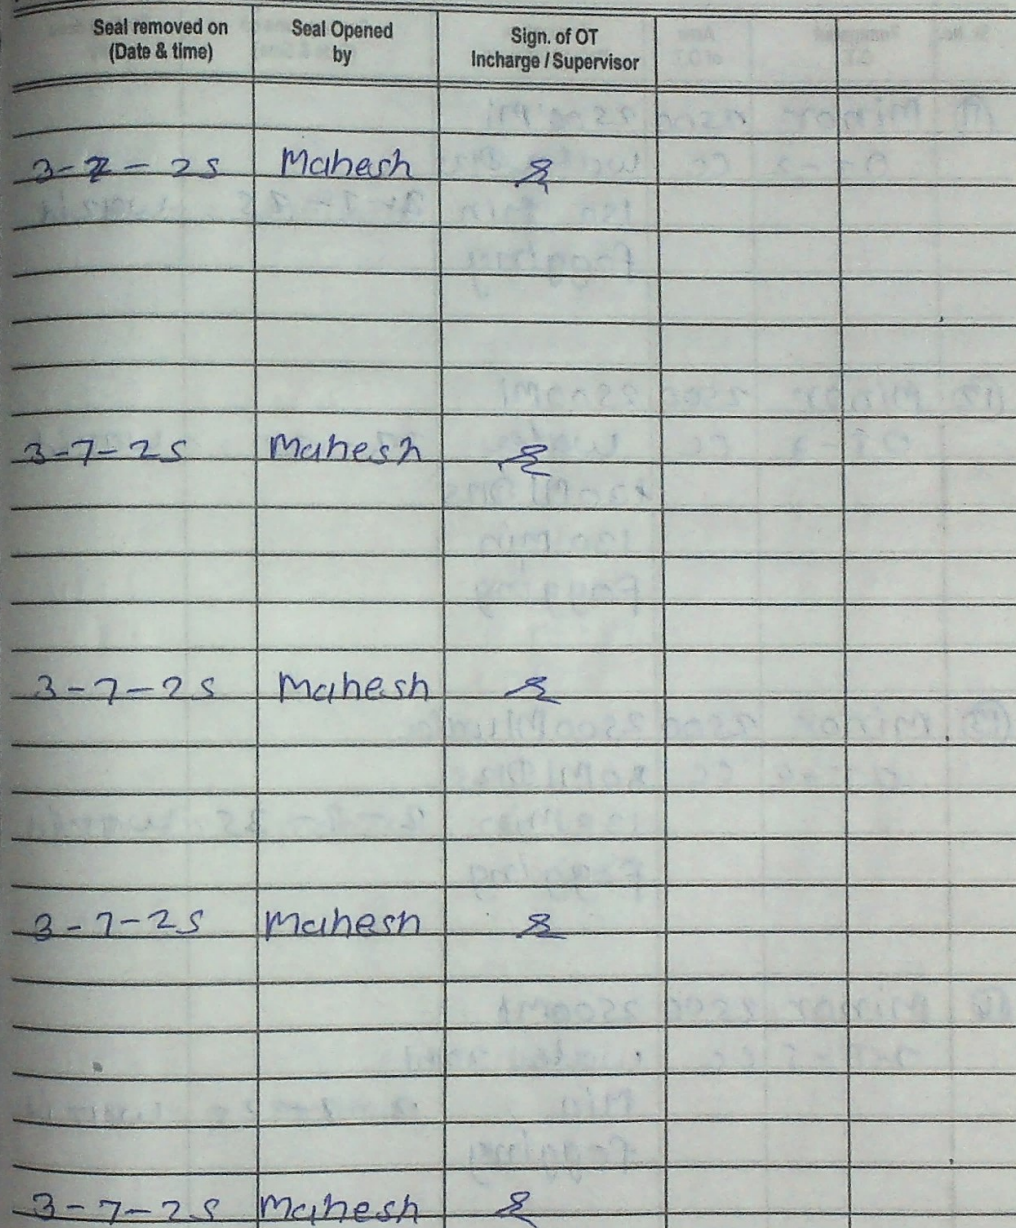 Seal removed on (Date & time) Seal Opened by Sign. of OT Incharge / Supervisor
3-7-25 Mahesh
3-7-25 Mahesh
3-7-25 Mahesh
3-7-25 Mahesh
3-7-25 Mahesh